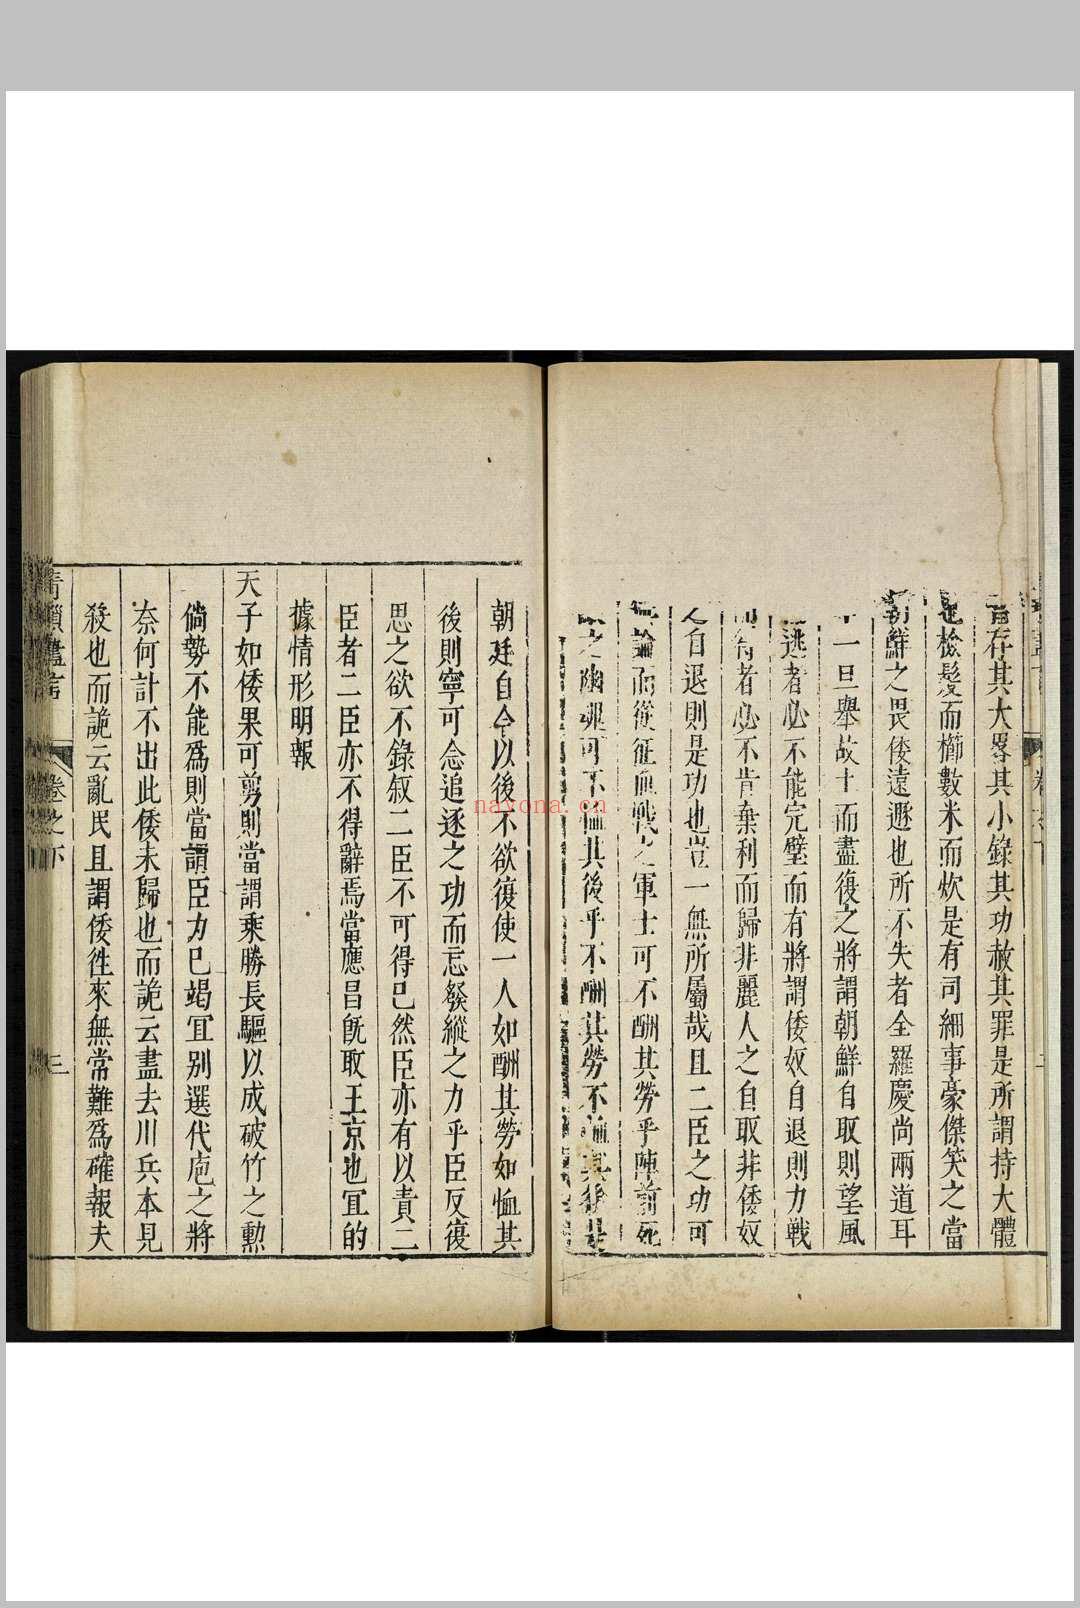 在其大畧其小錄其功赦其罪是所謂持大體
檢髮而櫛數米而炊是有司細事豪傑笑之當
朝鮮之畏倭遠遯也所不失者全羅慶尚兩道耳
一旦舉故土而盡復之將謂朝鮮自取則望風
逃者必不能完璧而有將謂倭奴自退則力戰
得者必不肯棄利而歸非麗人之自取非倭奴
之自退則是功也豈一無所屬哉且二臣之功可
無論而從征血戰之軍士可不酬其勞乎陣前死
之幽魂可不恤其後乎不酬其勞不恤其後是
朝廷自今以後不欲復使一人如酬其勞如恤其
後則寧可念追逐之功而忘發縱之力乎臣反復
思之欲不錄叙二臣不可得已然臣亦有以責二
臣者二臣亦不得辭焉當應昌既取王京也宜的
據情形明報
天子如倭果可剪則當謂乘勝長驅以成破竹之勲
倘勢不能爲則當謂臣力已竭宜别選代庖之將
奈何計不出此倭未歸也而詭云盡去川兵本見
殺也而詭云亂民且謂倭徃來無常難爲確報夫
青瑣藎言
卷之下
三
nayona.cn